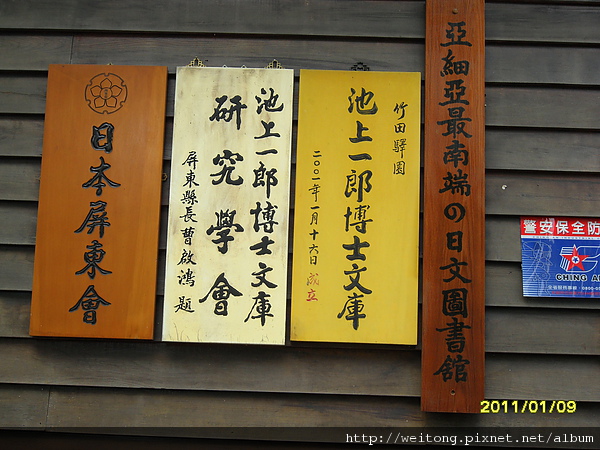 亞細亞最南端の日文圖書館
竹田驛園
池上一郎博士文庫
二〇〇一年一月十六日成立
池上一郎博士文庫
研究學會
屏東縣長曹啟鴻題
日本屏東會
警安保全防
CHING A
2011/01/09
http://weitong.pixnet.net/album